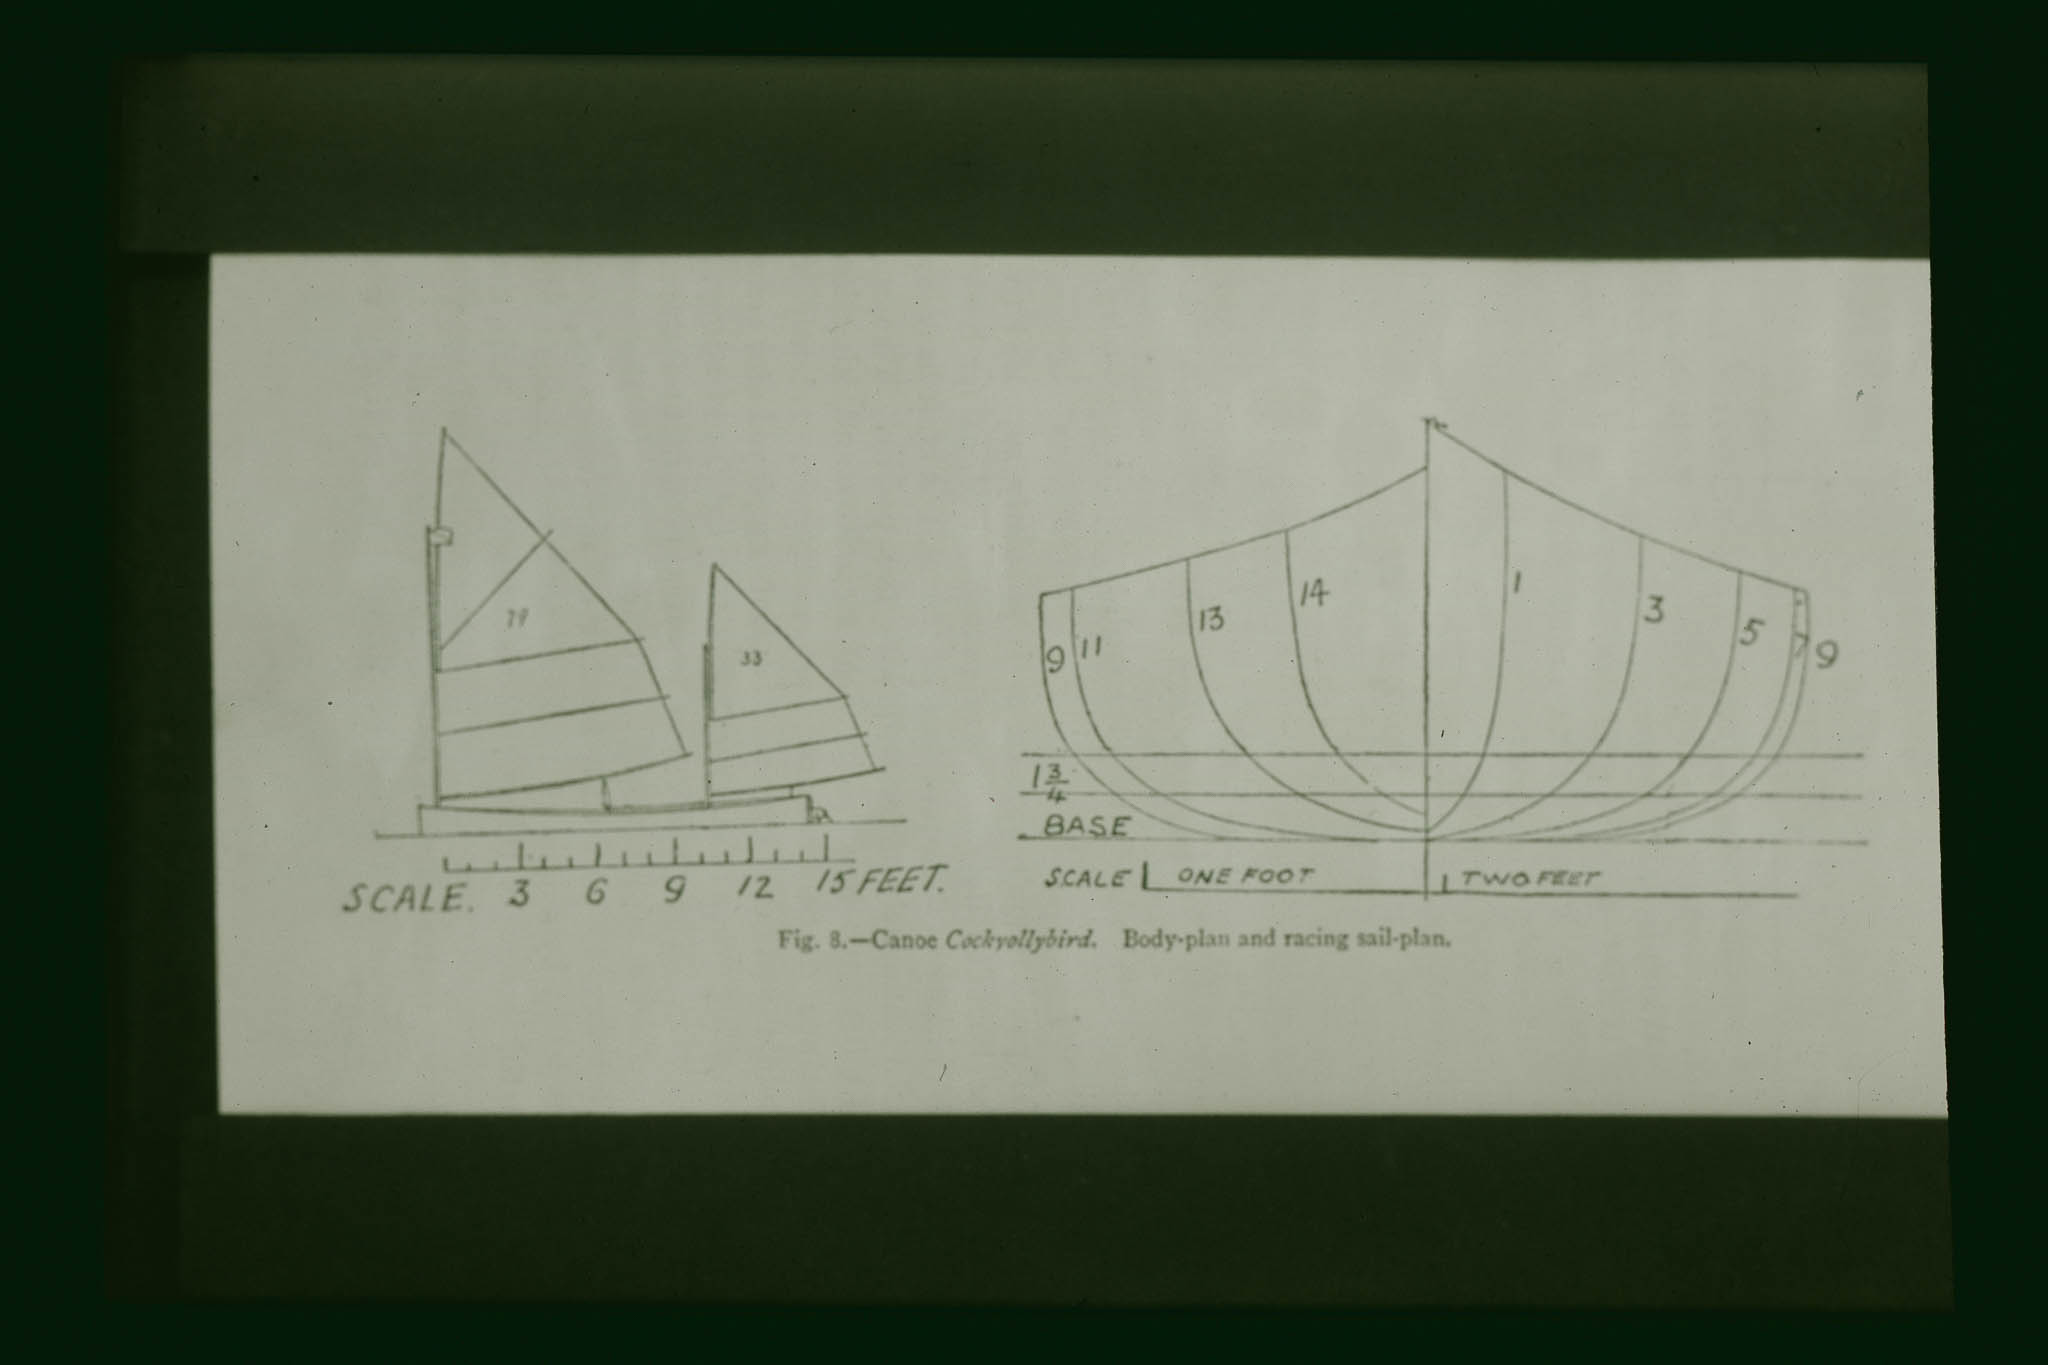 79
33
SCALE. 3 6 9 12 15 FEET.
9 11 13 14 1 3 5 7 9
1 3/4
BASE
SCALE ONE FOOT TWO FEET
Fig. 8.—Canoe Cockyollybird. Body-plan and racing sail-plan.